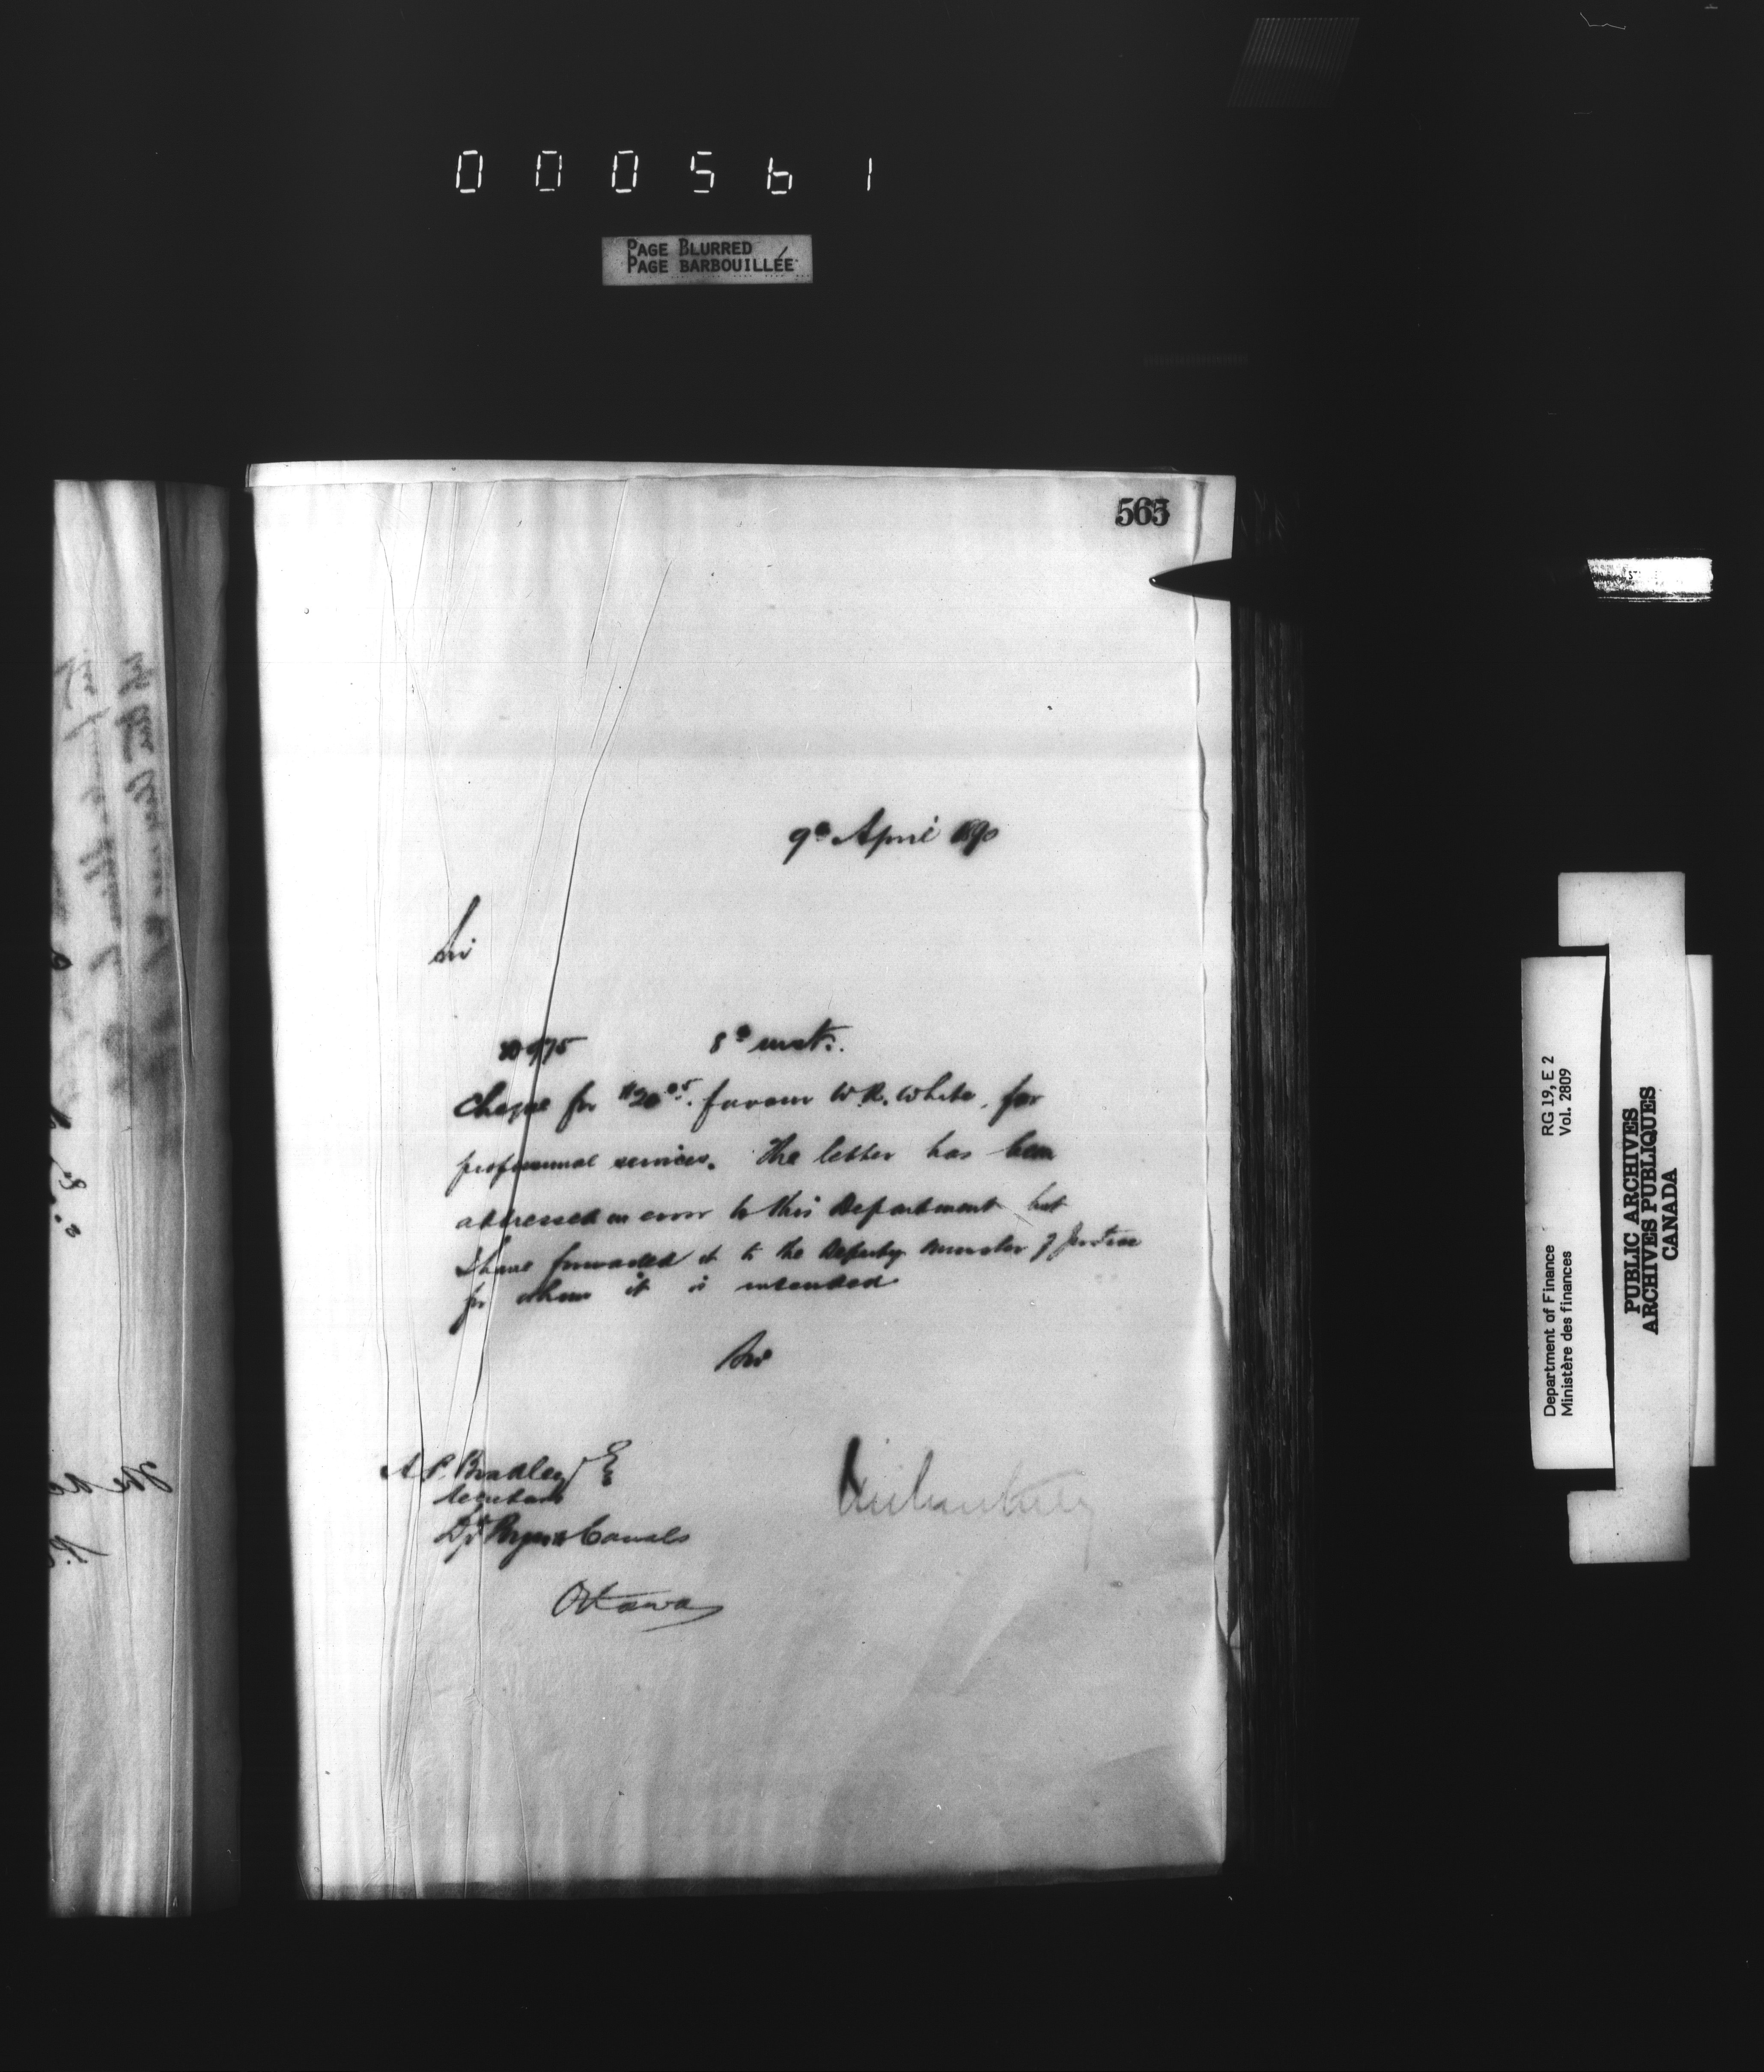 000561
PAGE BLURRED
PAGE BARBOUILLÉE
565
9th April 1890
Sir
975 8th inst.
Cheque for $20.05. favour W.R. White, for
professional services. The letter has been
addressed in error to this Department but
I have forwarded it to the Deputy Minister of Justice
for whom it is intended
Sir
A.P. Bradley Esq
Secretary
Dpt Rys & Canals
Ottawa
RG 19, E 2
Vol. 2809
Department of Finance
Ministère des finances
PUBLIC ARCHIVES
ARCHIVES PUBLIQUES
CANADA